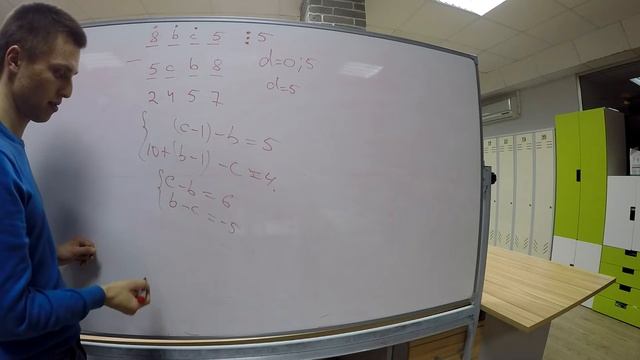 8 b c 5 ⋮ 5
- 5 c b 8
d=0;5
2 4 5 7
d=5
{ (c-1)-b=5
10+(b-1)-c=4.
{ c-b=6
b-c=-5